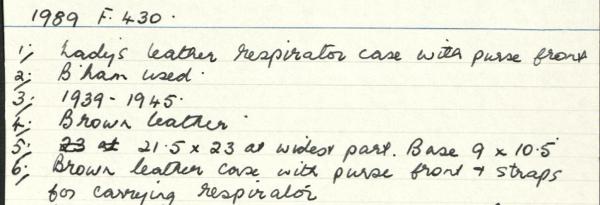 1989 F. 430.
1; Lady's leather respirator case with purse front
2; B'ham used.
3; 1939 - 1945.
4; Brown leather.
5; 23 at 21.5 x 23 at widest part. Base 9 x 10.5
6; Brown leather case with purse front + straps
for carrying respirator